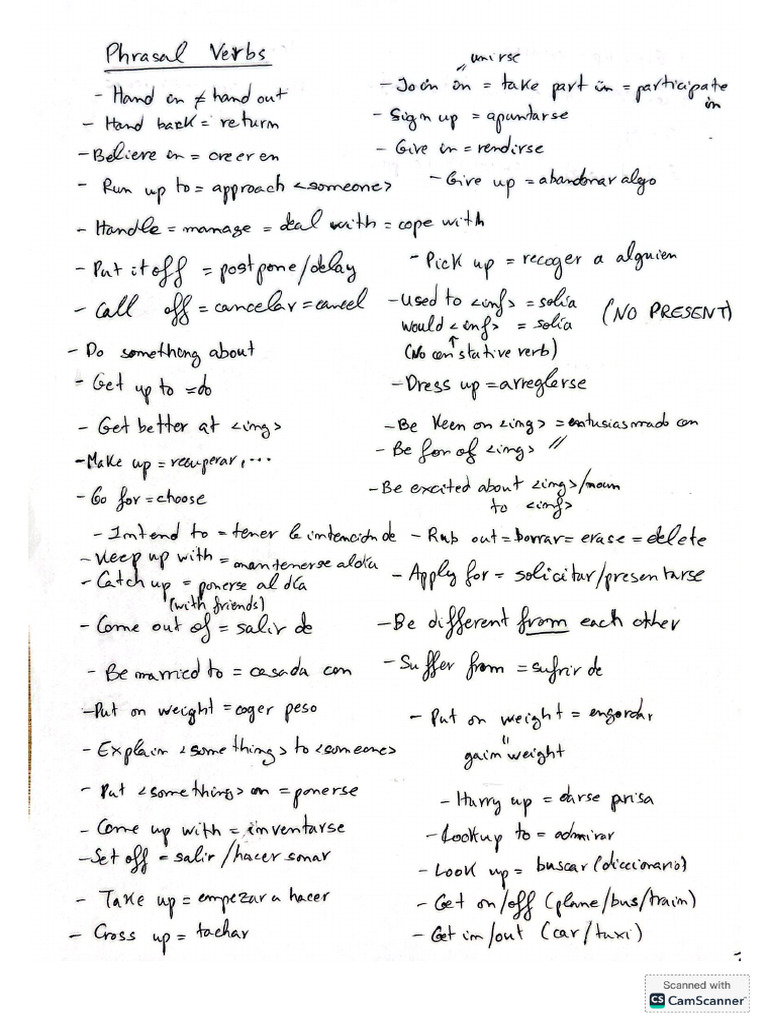 Phrasal Verbs
- Hand in ≠ hand out
- Hand back = return
- Believe in = creer en
- Run up to = approach <someone>
- Handle = manage = deal with = cope with
- Put it off = postpone/delay
- Call off = cancelar = cancel
- Do something about
- Get up to = do
- Get better at <ing>
- Make up = recuperar, ...
- Go for = choose
- Intend to = tener la intención de
- Keep up with = mantenerse al día
- Catch up = ponerse al día
(with friends)
- Come out of = salir de
- Be married to = casada con
- Put on weight = coger peso
- Explain <something> to <someone>
- Put <something> on = ponerse
- Come up with = inventarse
- Set off = salir/hacer sonar
- Take up = empezar a hacer
- Cross up = tachar
unirse
- Join in = take part in = participate
in
- Sign up = apuntarse
- Give in = rendirse
- Give up = abandonar algo
- Pick up = recoger a alguien
- Used to <inf> = solía
would <inf> = solía (NO PRESENT)
(No con stative verb)
- Dress up = arreglerse
- Be Keen on <ing> = entusiasmado con
- Be fon of <ing> "
- Be excited about <ing>/noun
to <inf>
- Rub out = borrar = erase = delete
- Apply for = solicitar/presentarse
- Be different from each other
- Suffer from = sufrir de
- Put on weight = engordar
"
gain weight
- Hurry up = darse prisa
- Look up to = admirar
- Look up = buscar (diccionario)
- Get on/off (plane/bus/train)
- Get in/out (car/taxi)
Scanned with
CS CamScanner